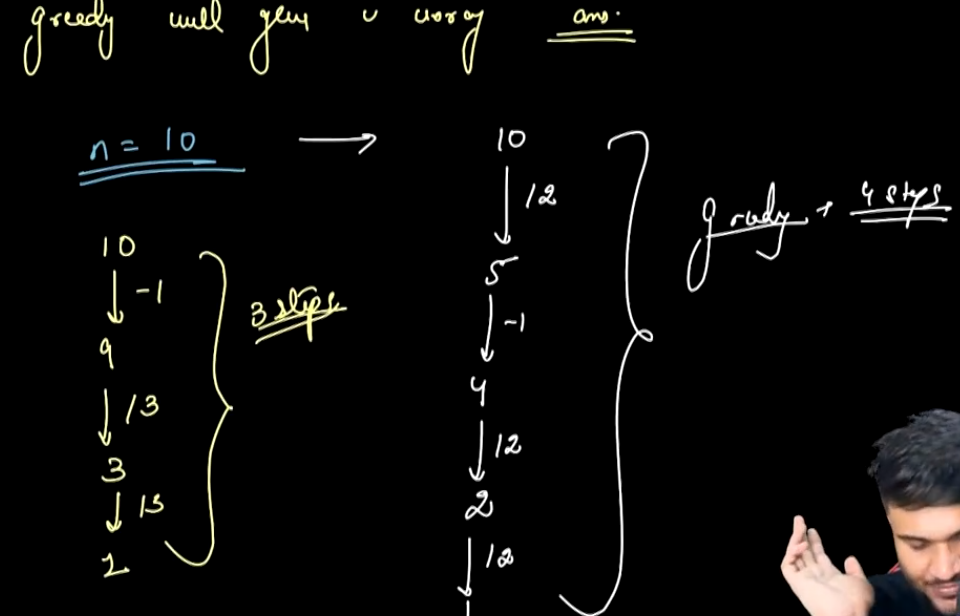 greedy will give u wrong ans.
n = 10
10
-1
9
/3
3
/3
1
3 steps
10
/2
5
-1
4
/2
2
/2
1
greedy → 4 steps